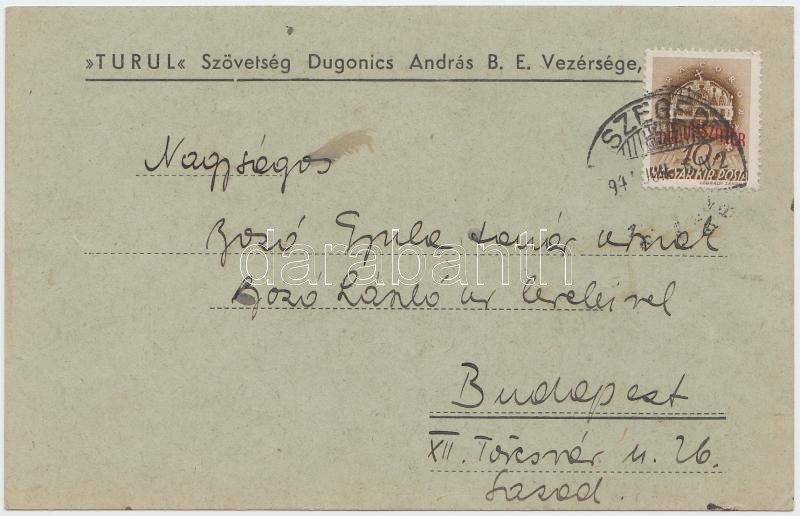 »TURUL« Szövetség Dugonics András B. E. Vezérsége,
SZEGED
DÉLVISSZATÉR
MAGYAR KIR. POSTA
Nagyságos
Bozó Gyula tanár úrnak
Bozó László úr leveleivel
darabanth
Budapest
XII. Törcsvár u. 26.
Sasad.